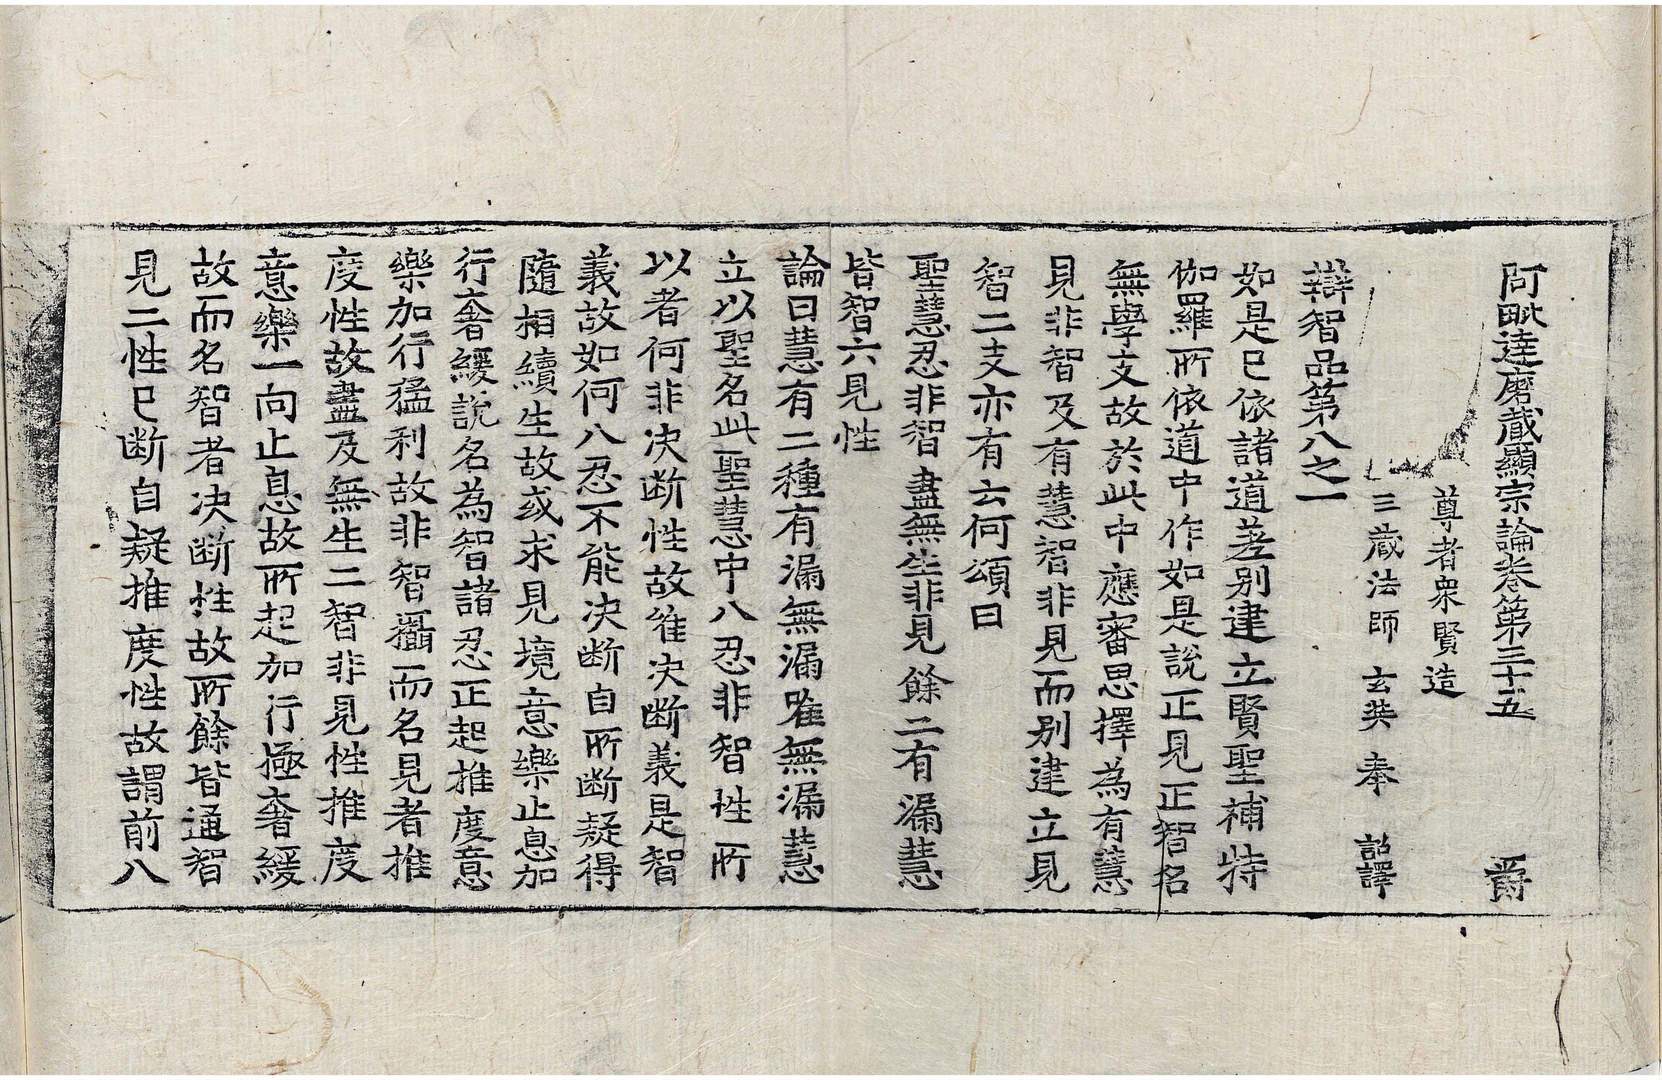 阿毗達磨藏顯宗論卷第三十五 爵
尊者衆賢造
三藏法師 玄奘 奉 詔譯
辯智品第八之一
如是已依諸道差別建立賢聖補特
伽羅所依道中作如是說正見正智名
無學支故於此中應審思擇為有慧
見非智及有慧智非見而別建立見
智二支亦有云何頌曰
聖慧忍非智 盡無生非見 餘二有漏慧
皆智六見性
論曰慧有二種有漏無漏唯無漏慧
立以聖名此聖慧中八忍非智性所
以者何非決断性故唯決断義是智
義故如何八忍不能決断自所断疑得
隨相續生故或求見境意樂止息加
行奢緩說名為智諸忍正起推度意
樂加行猛利故非智攝而名見者推
度性故盡及無生二智非見性推度
意樂一向止息故所起加行極奢緩
故而名智者決断性故所餘皆通智
見二性已断自疑推度性故謂前八